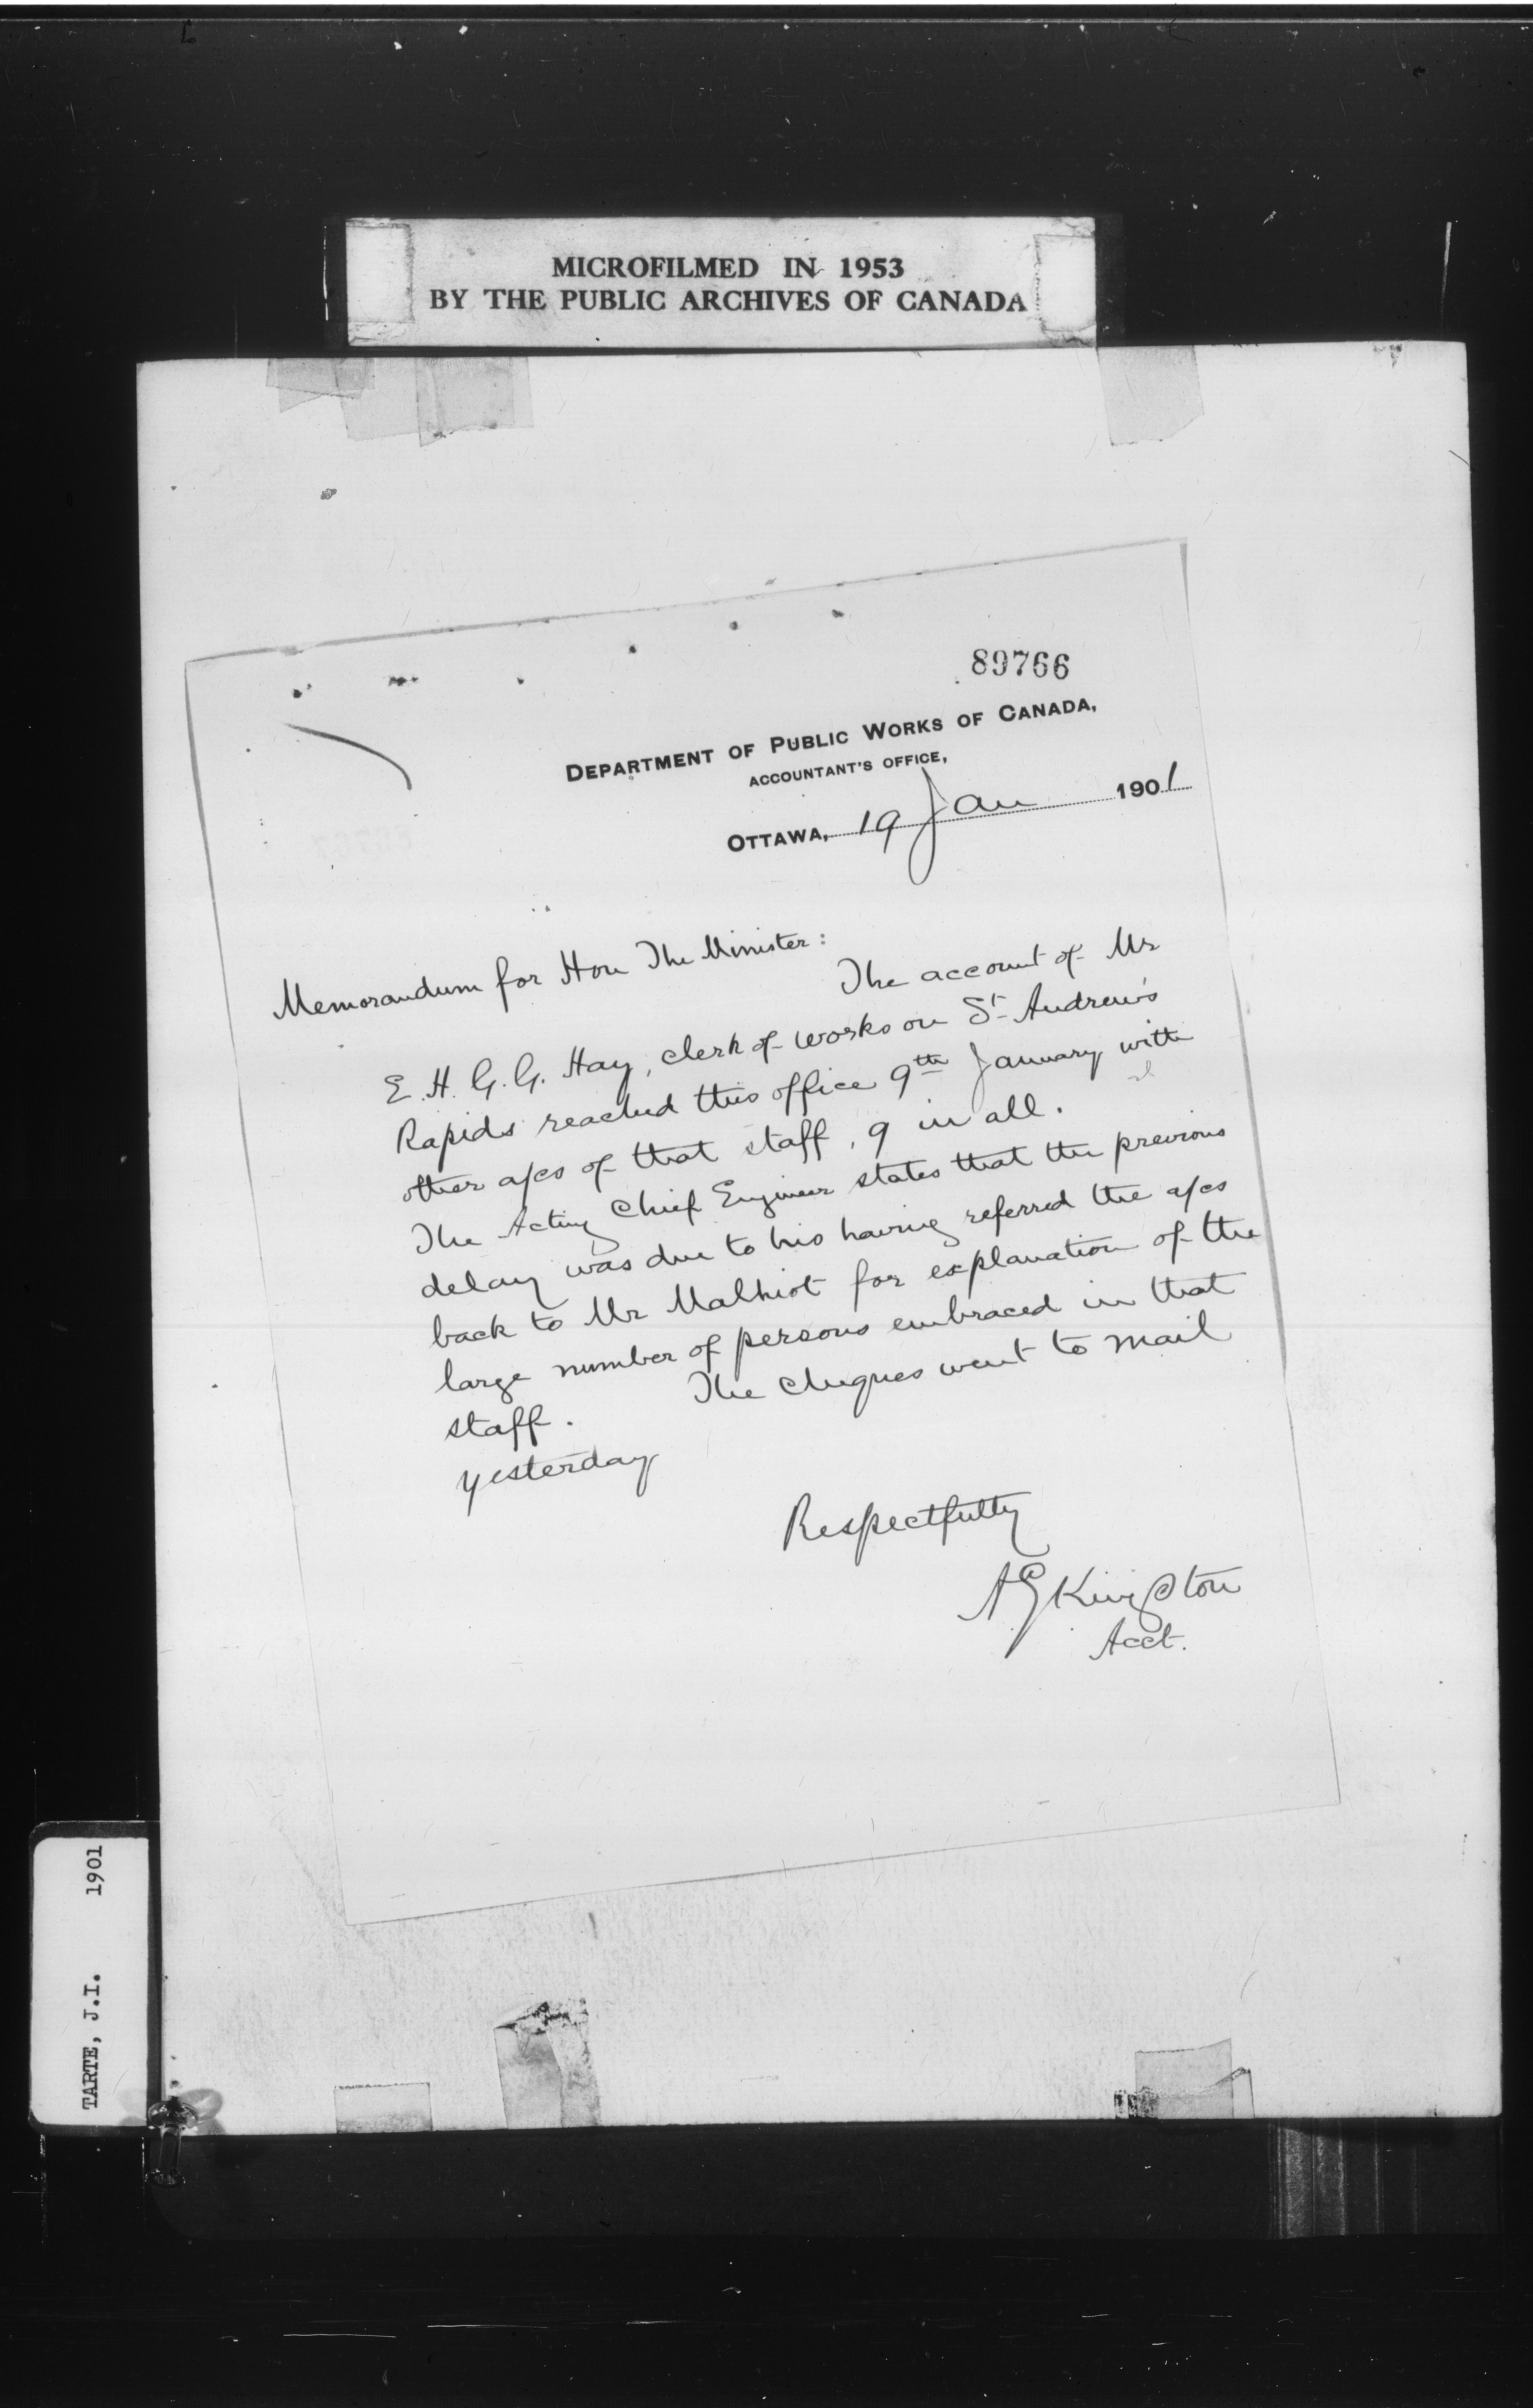 MICROFILMED IN 1953
BY THE PUBLIC ARCHIVES OF CANADA
89766
DEPARTMENT OF PUBLIC WORKS OF CANADA,
ACCOUNTANT'S OFFICE,
OTTAWA, 19 Jan 1901
Memorandum for Hon The Minister:
The account of Mr
E. H. G. G. Hay, clerk of works on St Andrew's
Rapids reached this office 9th January with
other a/cs of that staff, 9 in all.
The Acting Chief Engineer states that the previous
delay was due to his having referred the a/cs
back to Mr Malhiot for explanation of the
large number of persons embraced in that
staff. The cheques went to mail
yesterday
Respectfully
A G Kingston
Acct.
TARTE, J.I. 1901